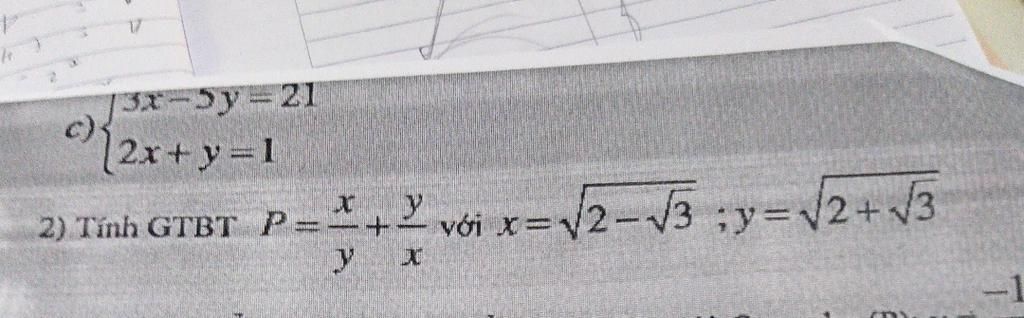 c) { 3x − 5y = 21
2x + y = 1
2) Tính GTBT P = x/y + y/x với x = √(2 − √3) ; y = √(2 + √3)
−1